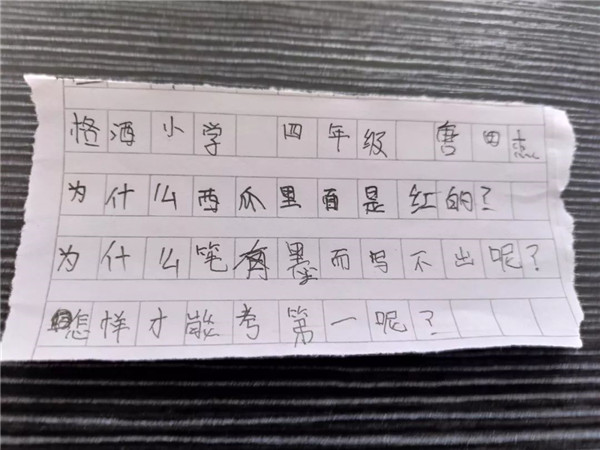 酒小学 四年级 唐田
为什么西瓜里面是红的？
为什么笔有墨而写不出呢？
怎样才能考第一呢？